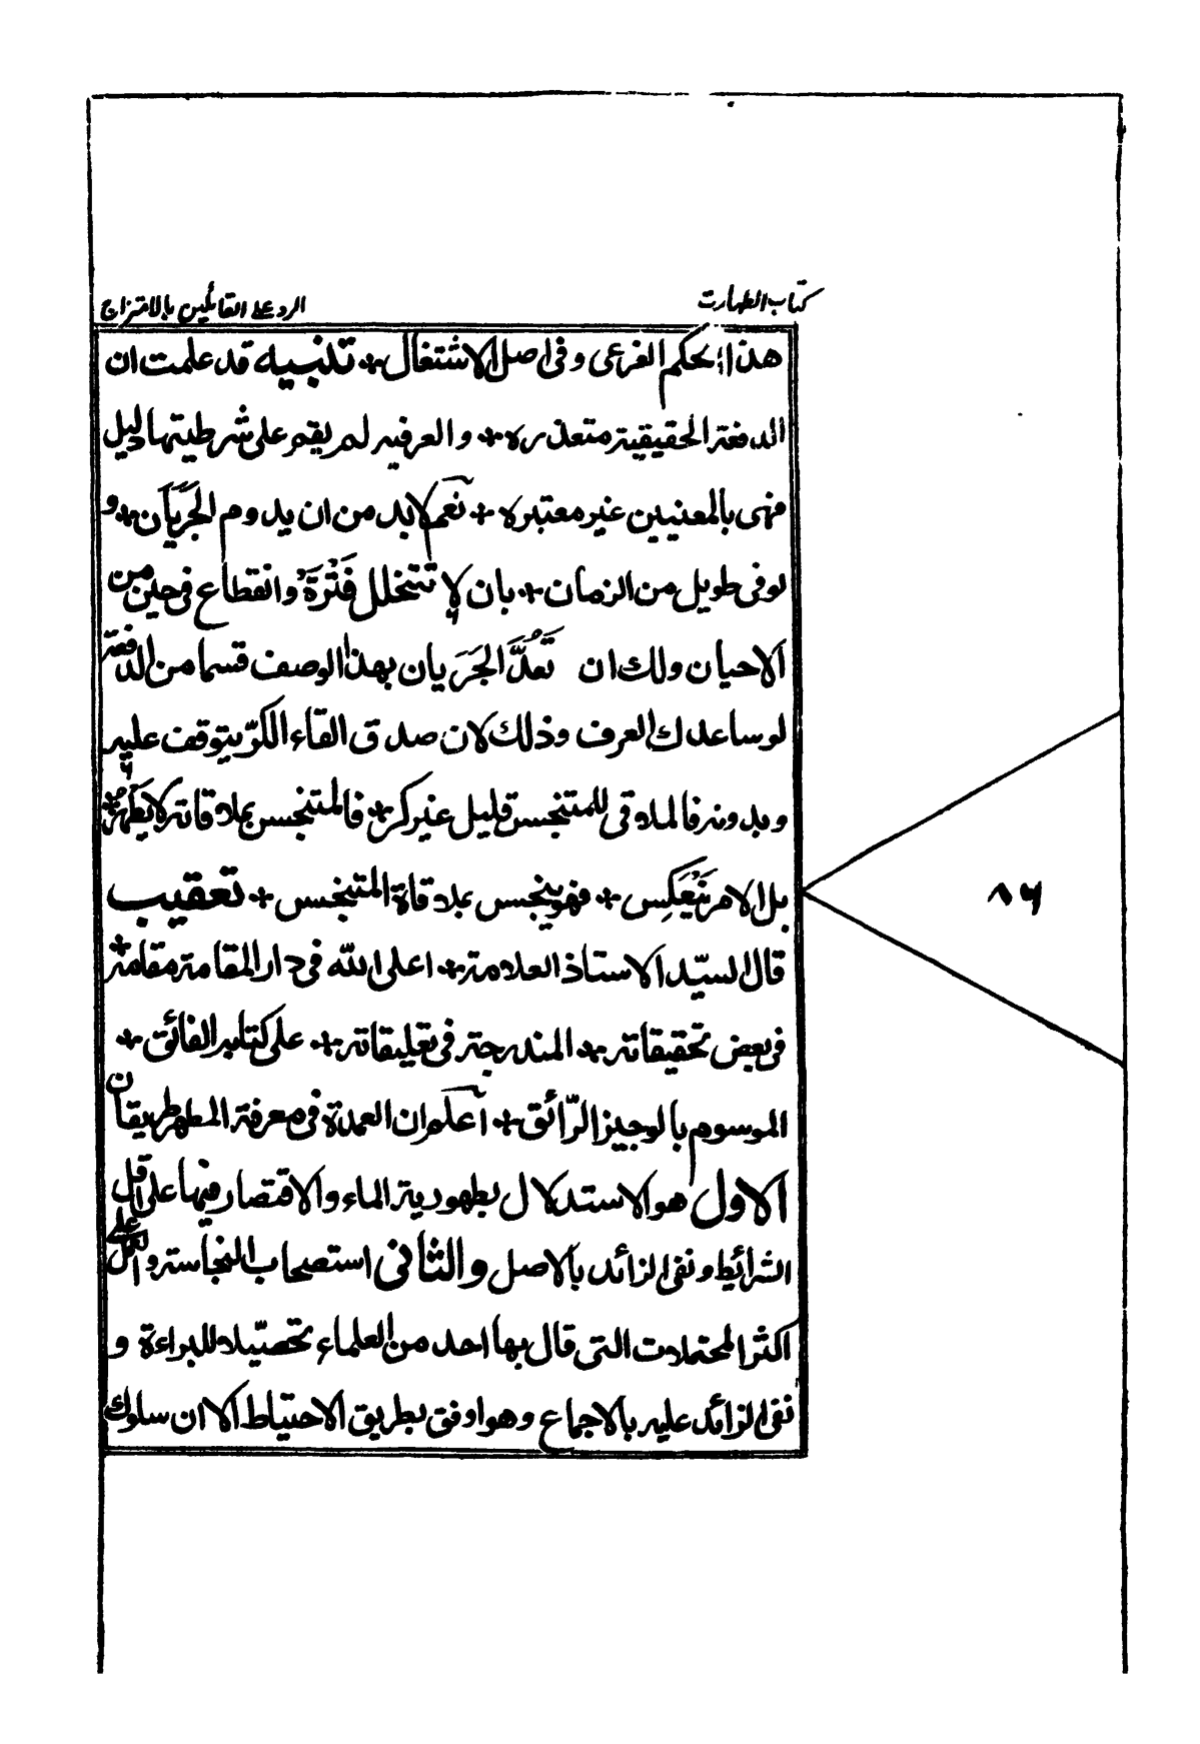 كتاب الطهارت
الرد على القائلين بالامتزاج
هذا الحكم الفرعى وفى اصل الاشتغال + تنبيه قد علمت ان
الدفعة الحقيقية متعذره + والعرفيه لم يقم على شرطيتها دليل
فهى بالمعنيين غير معتبره + نعم لابد من ان يدوم الجَرَيَان + و
لو فى طويل من الزمان + بان لا تتخلل فَتْرَةٌ وانقطاع فى حين من
الاحيان ولك ان تَعُدَّ الجَرَيان بهذا الوصف قسما من الدفعة
لو ساعدك العرف وذلك لان صدق القاء الكرّ يتوقف عليه
وبدونه فالملاقى للمتنجس قليل غير كر + فالمتنجس بملاقاته لا يَطهُر +
بل الامر يَنعَكِس + فهو ينجس بملاقاة المتنجس + تعقيب
قال السيّد الاستاذ العلامة + اعلى الله فى دار المقامة مقامه +
فى بعض تحقيقاته + المندرجة فى تعليقاته + على كتابه الفائق +
الموسوم بالوجيز الرّائق + اعلم ان العمدة فى معرفة المطهر طريقان
الاول هو الاستدلال بطهورية الماء والاقتصار فيها على اقل
الشرائط ونفى الزائد بالاصل والثانى استصحاب النجاسة والعمل على
اكثر المحتملات التى قال بها احد من العلماء تحصيّلا للبراءة و
نفى الزائد عليه بالاجماع وهو اوفق بطريق الاحتياط الا ان سلوك
٨٦